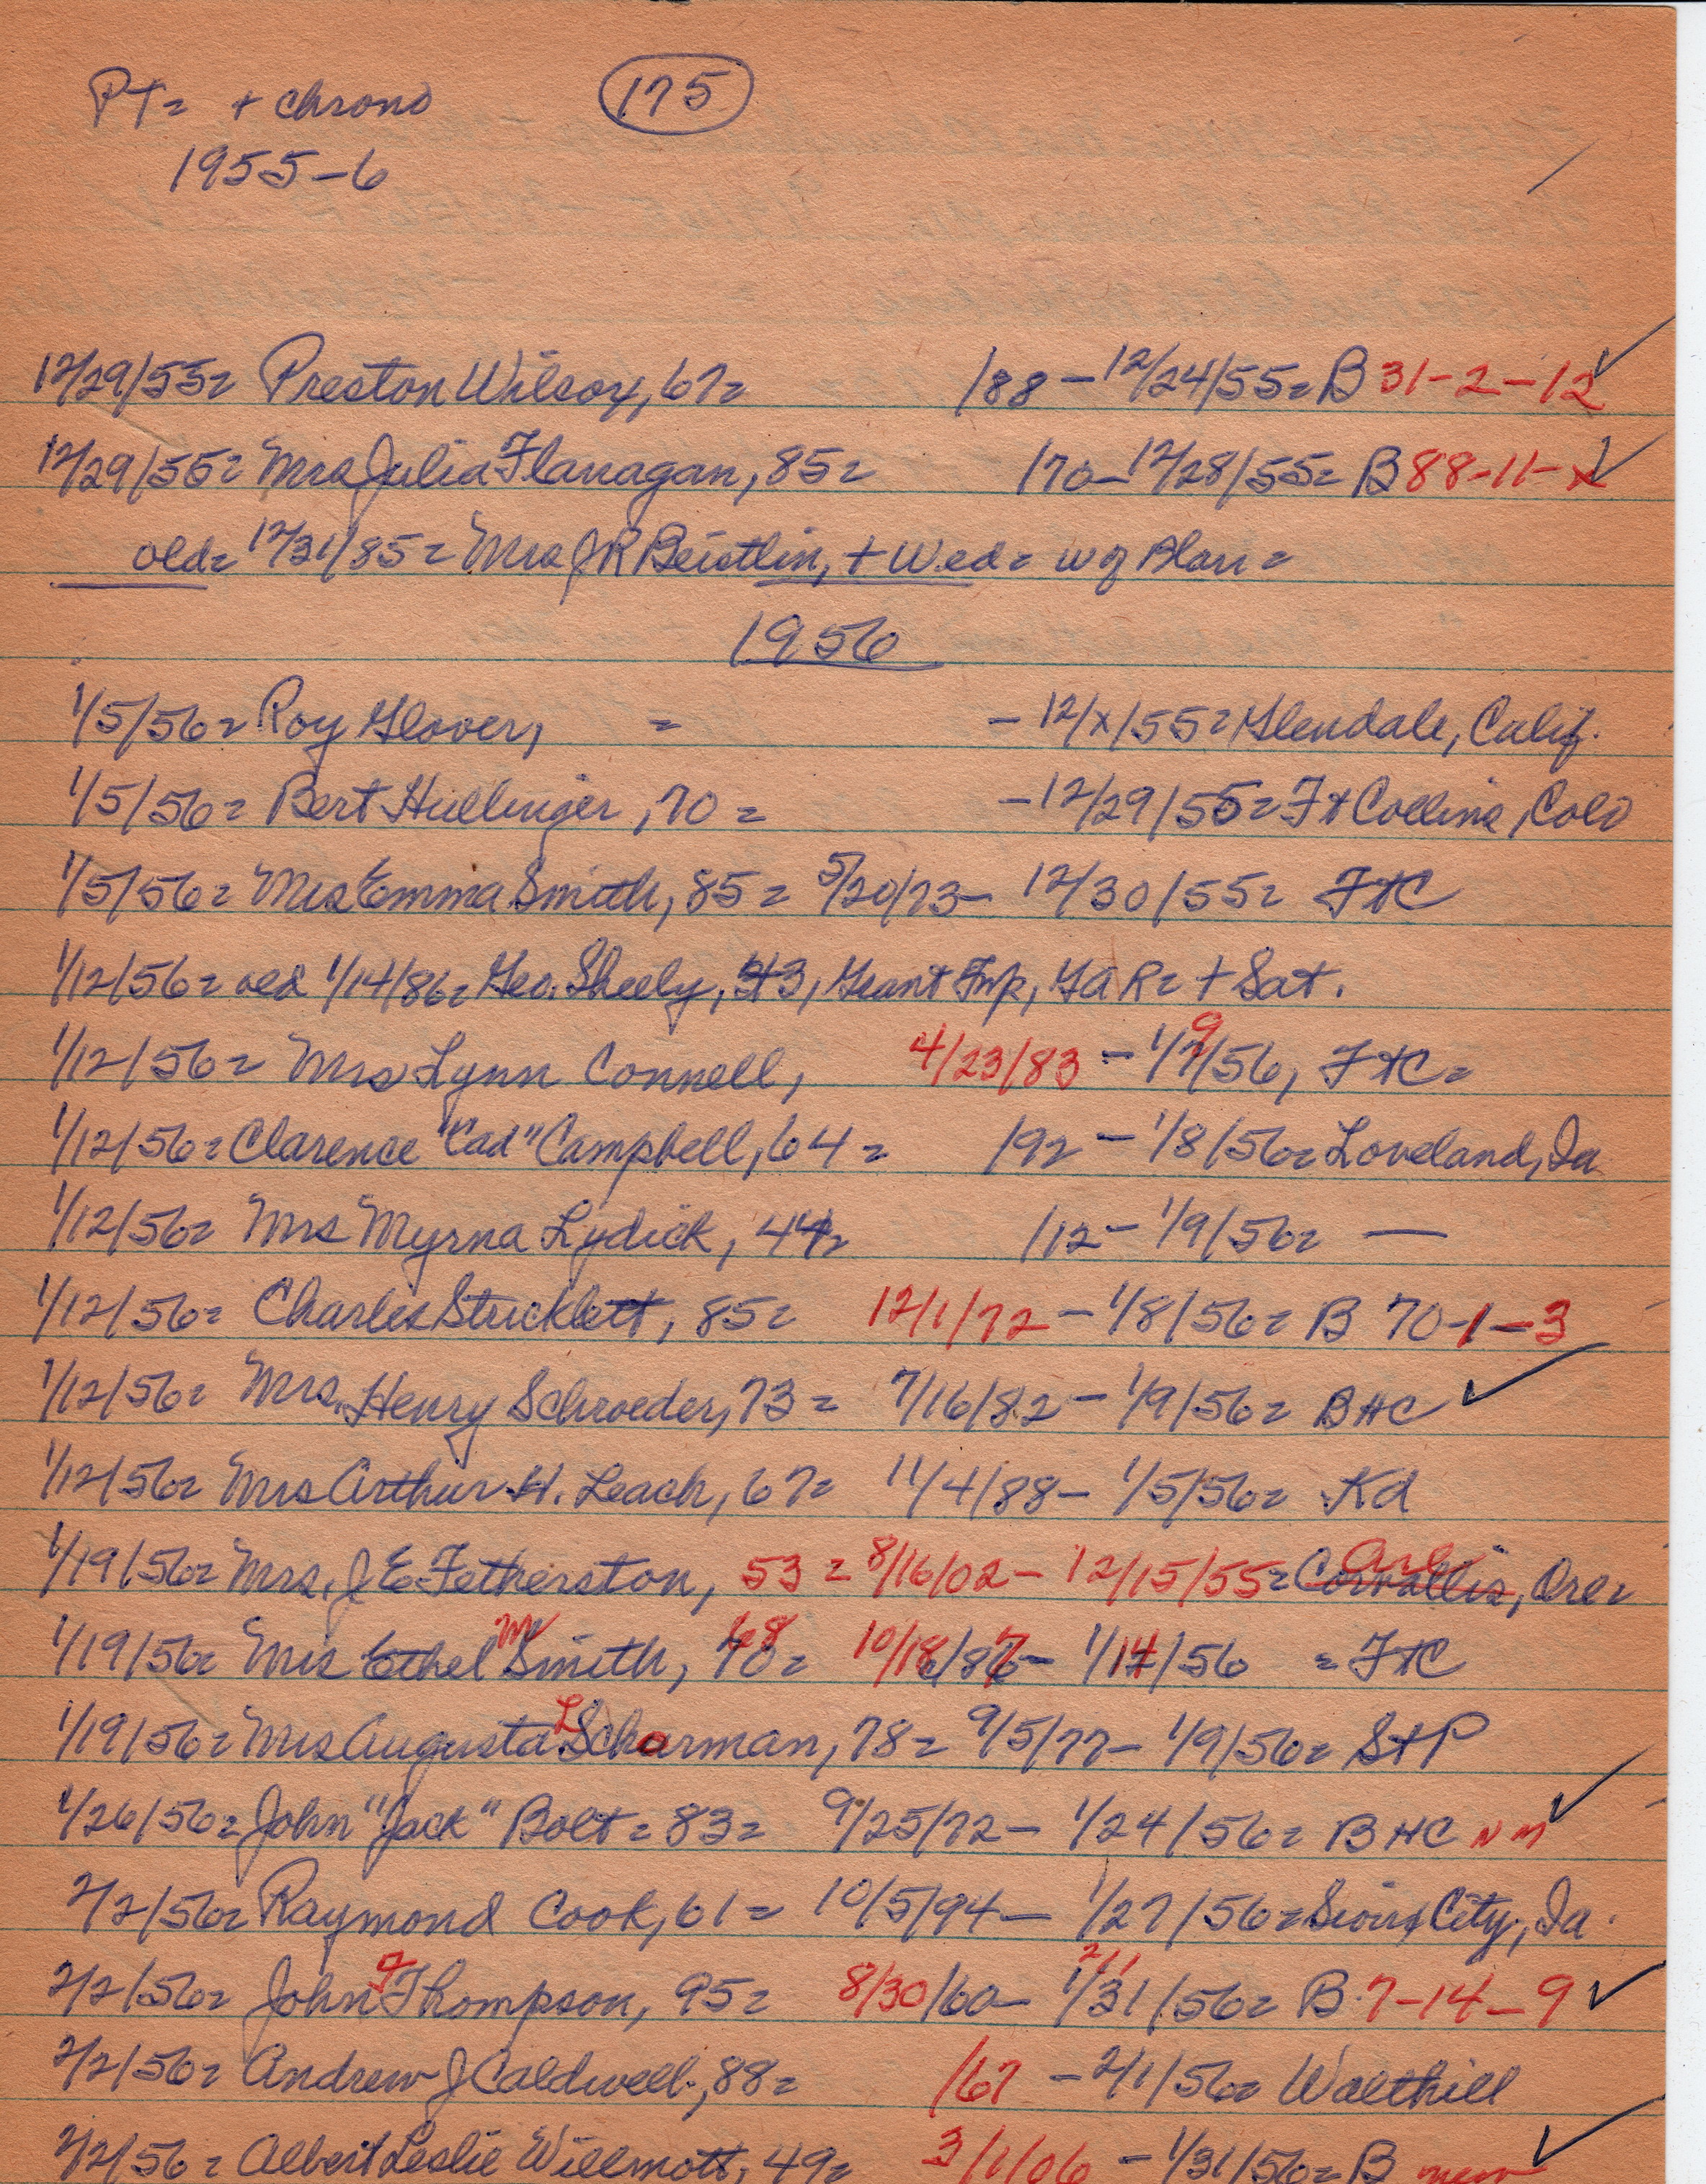 PT= + chrono (175)
1955-6
12/29/55= Preston Wilsoy, 67= /88 - 12/24/55= B 31-2-12 ✓
12/29/55= Mrs Julia Flanagan, 85= /70- 12/28/55= B 88-11-x ✓
old= 12/31/85= Mrs J R Beistlin, + Wed= w of Blair=
1956
1/5/56= Roy Glover, = - 12/x/55= Glendale, Calif.
1/5/56= Bert Hullinger, 70= - 12/29/55= Ft Collins, Colo
1/5/56= Mrs Emma Smith, 85= 5/20/73- 12/30/55= FtC
1/12/56= old 1/14/86= Geo. Sheely, 43, Grant Twp, GAR= + Sat.
1/12/56= Mrs Lynn Connell, 4/23/83 - 1/9/56, FtC=
1/12/56= Clarence "Cad" Campbell, 64= /92 - 1/8/56= Loveland, Ia
1/12/56= Mrs Myrna Lydick, 44= /12- 1/9/56= —
1/12/56= Charles Stricklett, 85= 12/1/72 - 1/8/56= B 70-1-3
1/12/56= Mrs. Henry Schroeder, 73= 7/16/82- 1/9/56= BHC ✓
1/12/56= Mrs Arthur H. Leach, 67= 11/4/88- 1/5/56= Kd
1/19/56= Mrs. J E Fetherston, 53= 8/16/02- 12/15/55= Corvallis, Ore=
1/19/56= Mrs Ethel M Smith, 68= 10/18/87- 1/14/56 = FtC
1/19/56= Mrs Augusta L Scharman, 78= 9/5/77- 1/9/56= StP
1/26/56= John "Jack" Bolt= 83= 9/25/72- 1/24/56= BHC NM ✓
2/2/56= Raymond Cook, 61= 10/5/94- 1/27/56= Sioux City, Ia.
2/2/56= John F Thompson, 95= 8/30/60- 1/31/56= 2/1 B 7-14-9 ✓
2/2/56= Andrew J Caldwell, 88= /67 - 2/1/56= Walthill
2/2/56= Albert Leslie Willmott, 49= 3/1/06 - 1/31/56= B new ✓